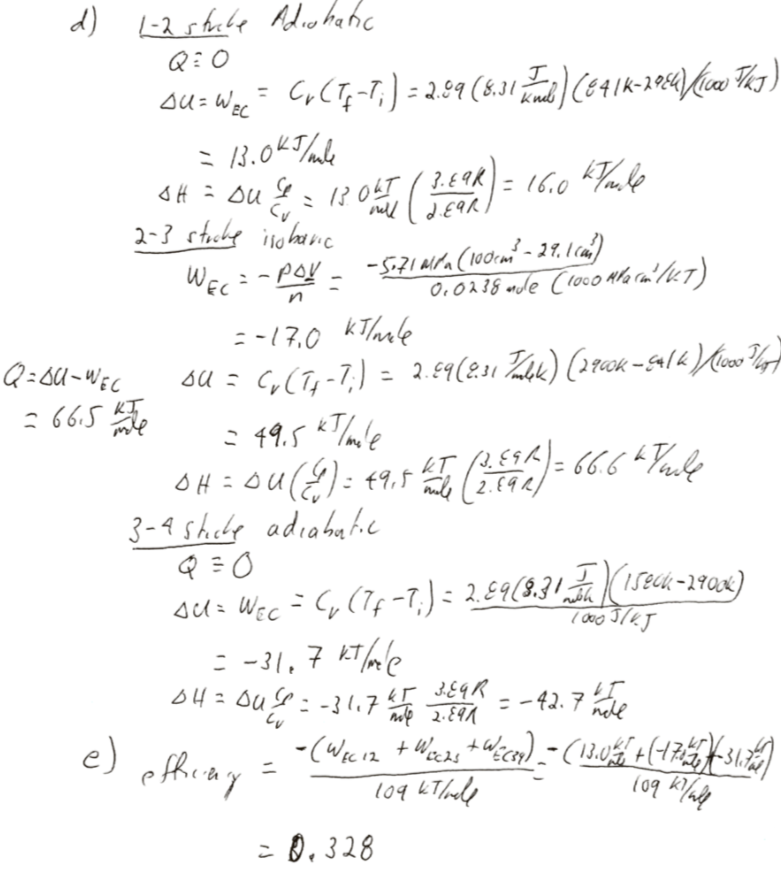 d) 1-2 stroke Adiabatic
Q ≡ 0
ΔU = W_EC = C_v (T_f - T_i) = 2.89 (8.31 J/K mole) (841K - 298K)/(1000 J/kJ)
= 13.0 kJ/mole
ΔH = ΔU C_p/C_v = 13.0 kJ/mole (3.89R/2.89R) = 16.0 kJ/mole
2-3 stroke isobaric
W_EC = -PΔV/n = -5.71 MPa (100cm³ - 29.1cm³) / 0.0238 mole (1000 MPa cm³/kJ)
= -17.0 kJ/mole
Q = ΔU - W_EC ΔU = C_v (T_f - T_i) = 2.89 (8.31 J/mole K) (2900K - 841K)/(1000 J/kJ)
= 66.5 kJ/mole = 49.5 kJ/mole
ΔH = ΔU (C_p/C_v) = 49.5 kJ/mole (3.89R/2.89R) = 66.6 kJ/mole
3-4 stroke adiabatic
Q ≡ 0
ΔU = W_EC = C_v (T_f - T_i) = 2.89 (8.31 J/mole K) (1580K - 2900K) / 1000 J/kJ
= -31.7 kJ/mole
ΔH = ΔU C_p/C_v = -31.7 kJ/mole 3.89R/2.89R = -42.7 kJ/mole
e) efficiency = -(W_EC12 + W_EC23 + W_EC34) / 109 kJ/mole = -(13.0 kJ/mole + (-17.0 kJ/mole) + (-31.7 kJ/mole)) / 109 kJ/mole
= 0.328